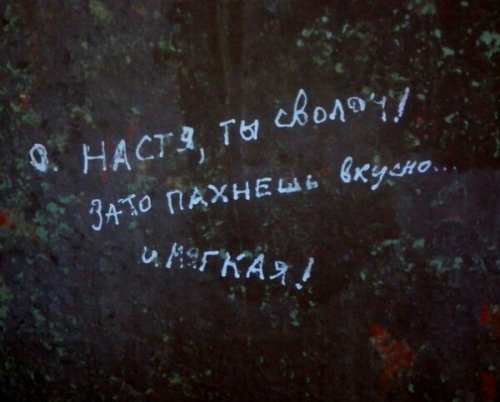 О. НАСТЯ, ТЫ СВОЛОЧ!
ЗАТО ПАХНЕШЬ ВКУСНО...
И МЯГКАЯ!